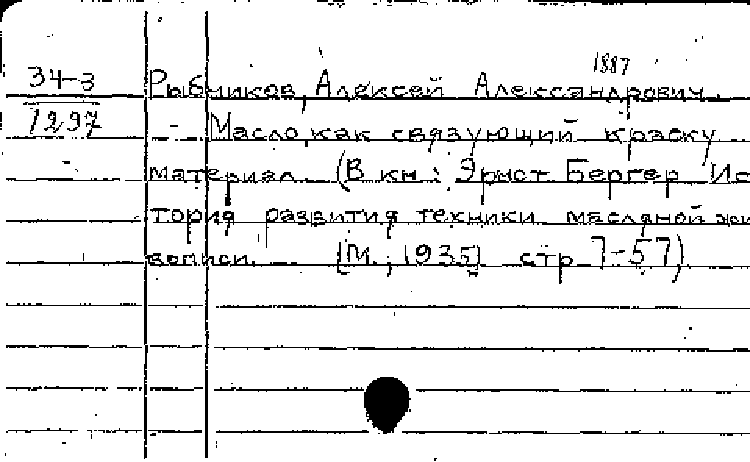 1887
34-3 Рыбников, Алексей Александрович.
1297 Масло, как связующий краску
материал. (В кн: Эрнст Бергер Ис
тория развития техники масляной жи
вописи. [М., 1935] стр 7-57)